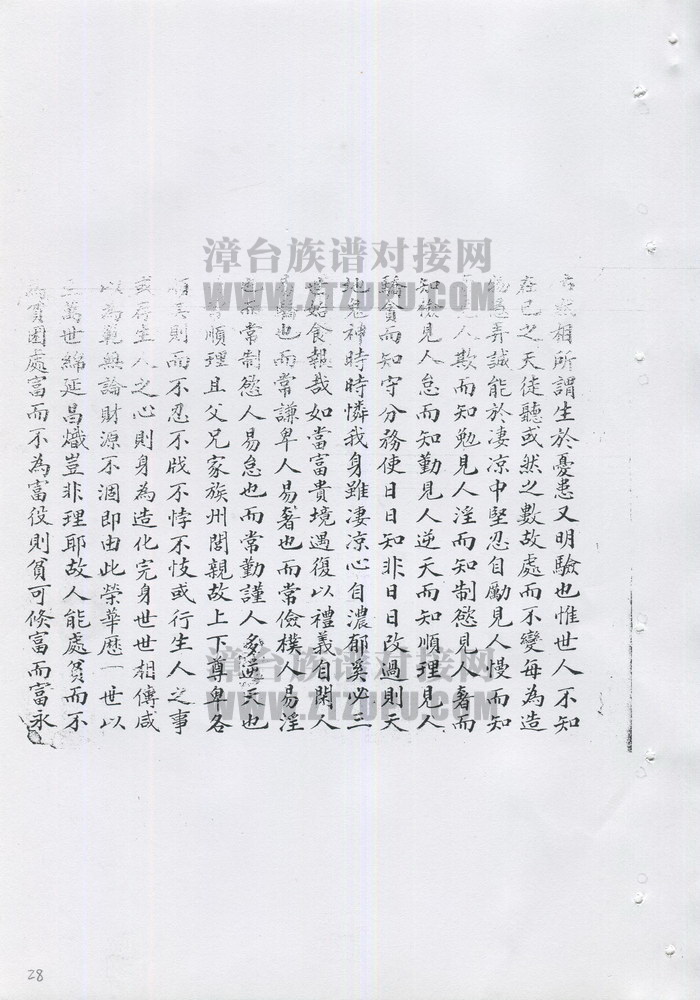 相所謂生於憂患又明驗也惟世人不知
在已之天徒聽或然之數故處而不變每為造
弄誠能於凄凉中堅忍自勵見人慢而知
人欺而知勉見人淫而知制慾見人奢而
知儉見人怠而知勤見人逆天而知順理見人
驕貪而知守分務使日日知非日日改過則天
地鬼神時時憐我身雖凄凉心自濃郁奚必三
始食報哉如當富貴境遇復以禮義自閑人
驕也而常謙卑人易奢也而常儉樸人易淫
也而常制慾人易怠也而常勤謹人多逆天也
順理且父兄家族州閭親故上下尊卑各
其則而不忍不戕不悖不忮或行生人之事
或存生人之心則身為造化完身世世相傳咸
以為範無論財源不涸即由此榮華歷一世以
萬世綿延昌熾豈非理耶故人能處貧而不
為貧困處富而不為富役則貧可倏富而富永
漳台族谱对接网
WWW.ZTZUPU.COM
漳台族谱对接网
WWW.ZTZUPU.COM
28